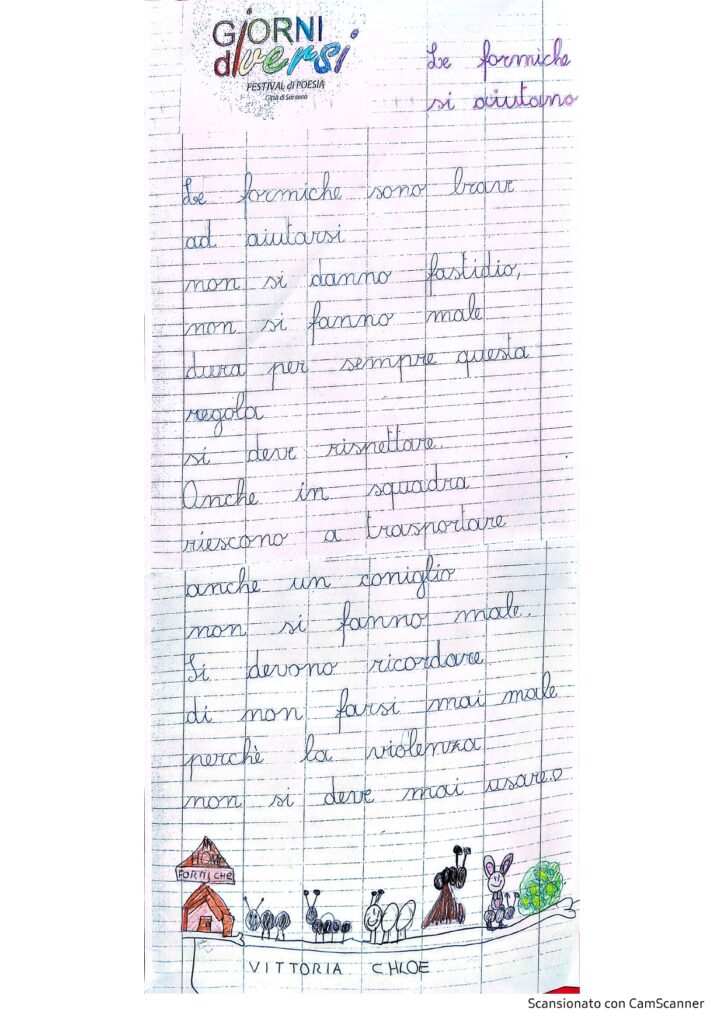 GiORNI
diversi
FESTIVAL di POESIA
Città di Saronno
Le formiche
si aiutano
Le formiche sono brave
ad aiutarsi
non si danno fastidio,
non si fanno male
dura per sempre questa
regola
si deve risnettare.
Anche in squadra
riescono a trasportare
anche un coniglio
non si fanno male.
Si devono ricordare
di non farsi mai male
perchè la violenza
non si deve mai usare♡
HOME
FORNICHE
VITTORIA CHLOE
Scansionato con CamScanner